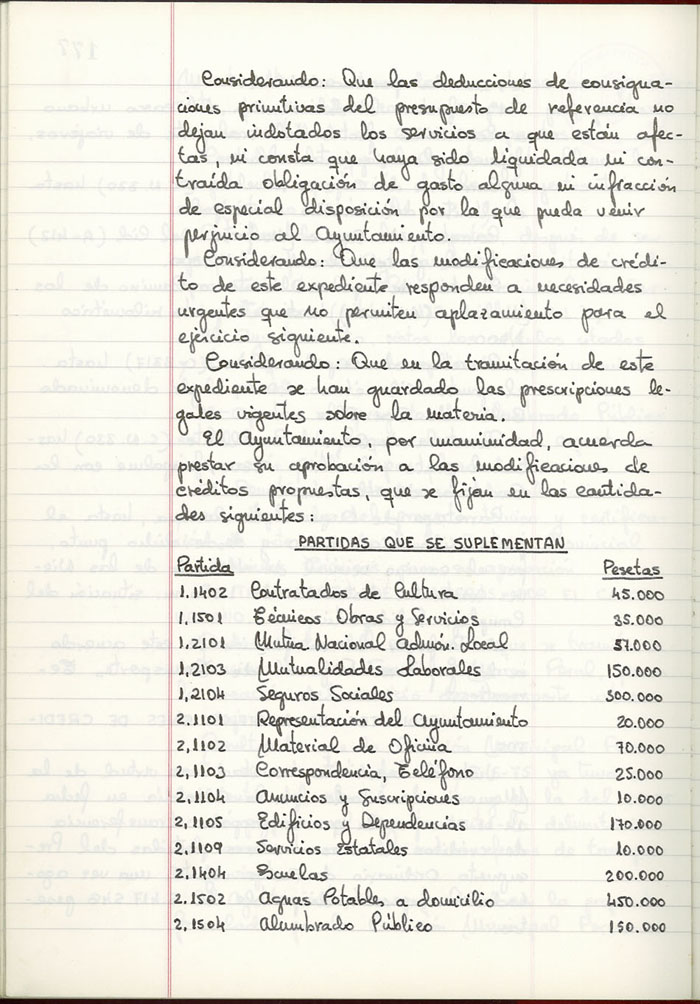 Considerando: Que las deducciones de consigna-
ciones primitivas del presupuesto de referencia no
dejan indotados los servicios a que están afec-
tas, ni consta que haya sido liquidada ni con-
traída obligación de gasto alguna ni infracción
de especial disposición por la que pueda venir
perjuicio al Ayuntamiento.
Considerando: Que las modificaciones de crédi-
to de este expediente responden a necesidades
urgentes que no permiten aplazamiento para el
ejercicio siguiente.
Considerando: Que en la tramitación de este
expediente se han guardado las prescripciones le-
gales vigentes sobre la materia.
El Ayuntamiento, por unanimidad, acuerda
prestar su aprobación a las modificaciones de
créditos propuestas, que se fijan en las cantida-
des siguientes:
PARTIDAS QUE SE SUPLEMENTAN
Partida Pesetas
1,1402 Contratados de Cultura 45.000
1,1501 Técnicos Obras y Servicios 35.000
1,2101 Mutua Nacional Admón. Local 57.000
1,2103 Mutualidades Laborales 150.000
1,2104 Seguros Sociales 300.000
2,1101 Representación del Ayuntamiento 20.000
2,1102 Material de Oficina 70.000
2,1103 Correspondencia, Teléfono 25.000
2,1104 Anuncios y Suscripciones 10.000
2,1105 Edificios y Dependencias 170.000
2,1109 Servicios Estatales 10.000
2,1404 Escuelas 200.000
2,1502 Aguas Potables a domicilio 450.000
2,1504 Alumbrado Público 150.000